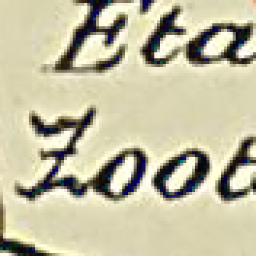 Eta
Zoot